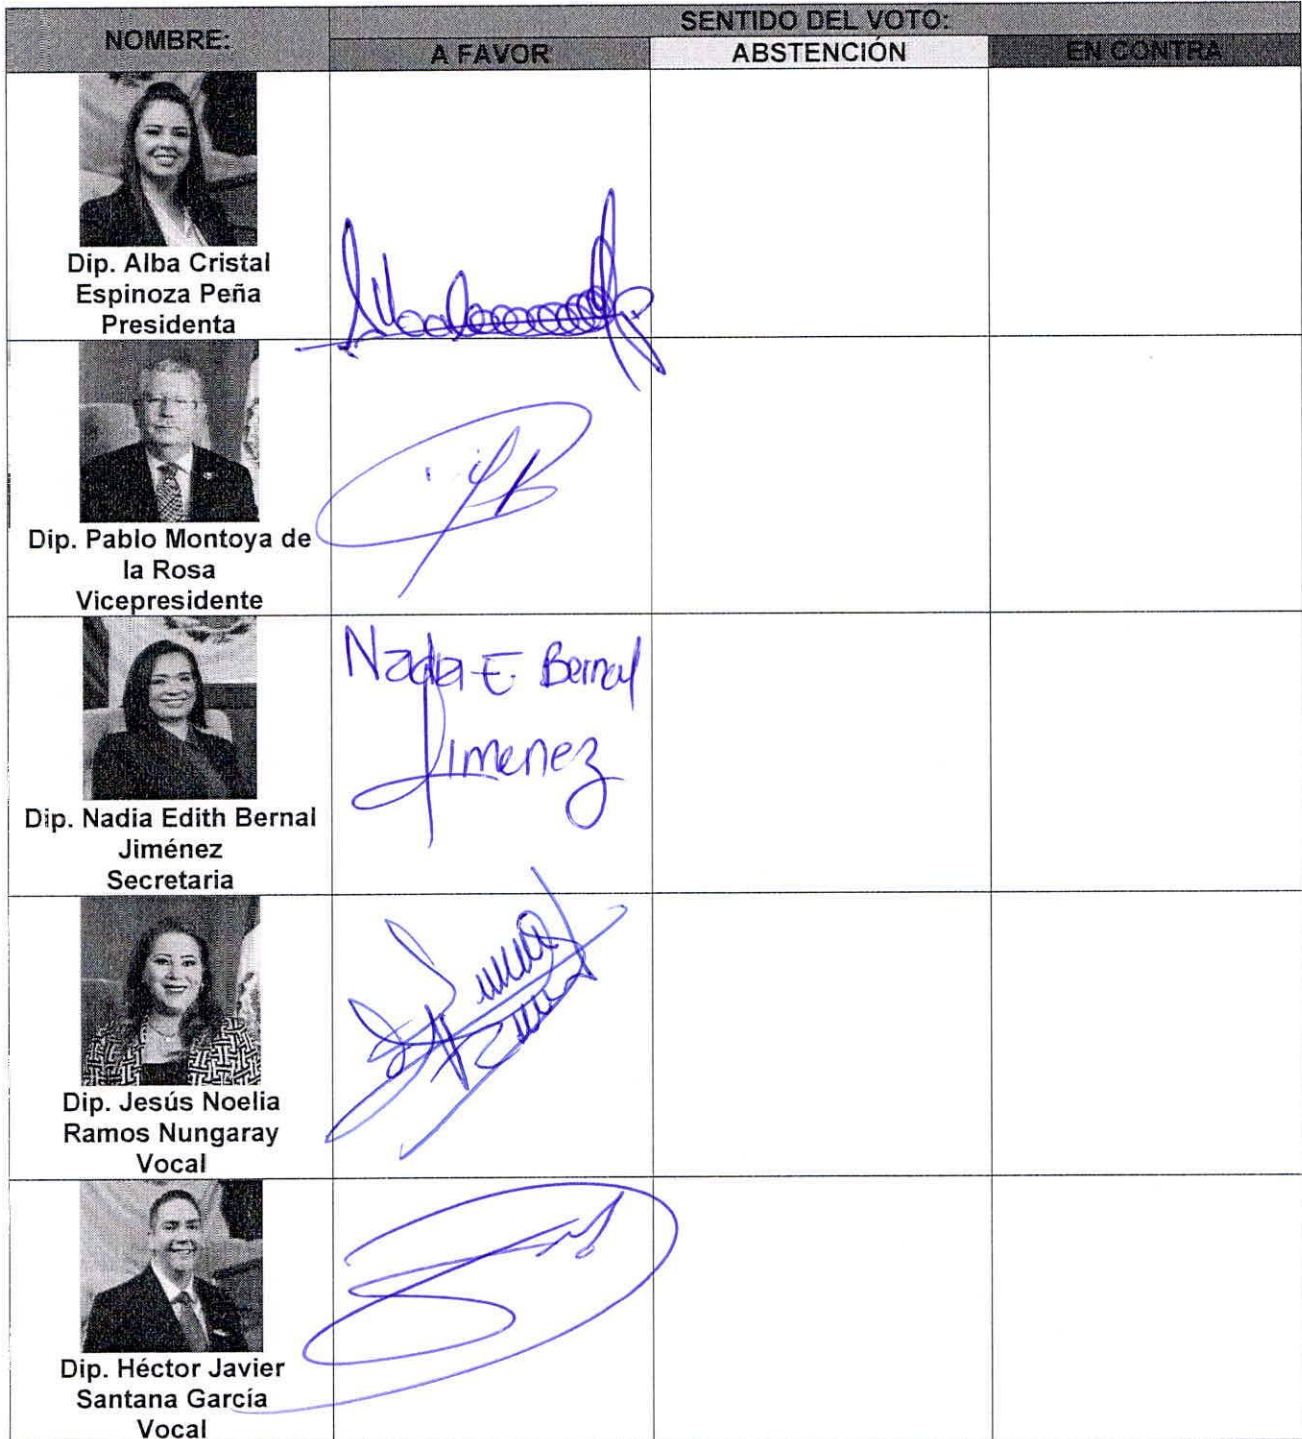 NOMBRE:
SENTIDO DEL VOTO:
A FAVOR
ABSTENCIÓN
EN CONTRA
Dip. Alba Cristal
Espinoza Peña
Presidenta
Dip. Pablo Montoya de
la Rosa
Vicepresidente
Nadia E Bernal
Jimenez
Dip. Nadia Edith Bernal
Jiménez
Secretaria
Dip. Jesús Noelia
Ramos Nungaray
Vocal
Dip. Héctor Javier
Santana García
Vocal